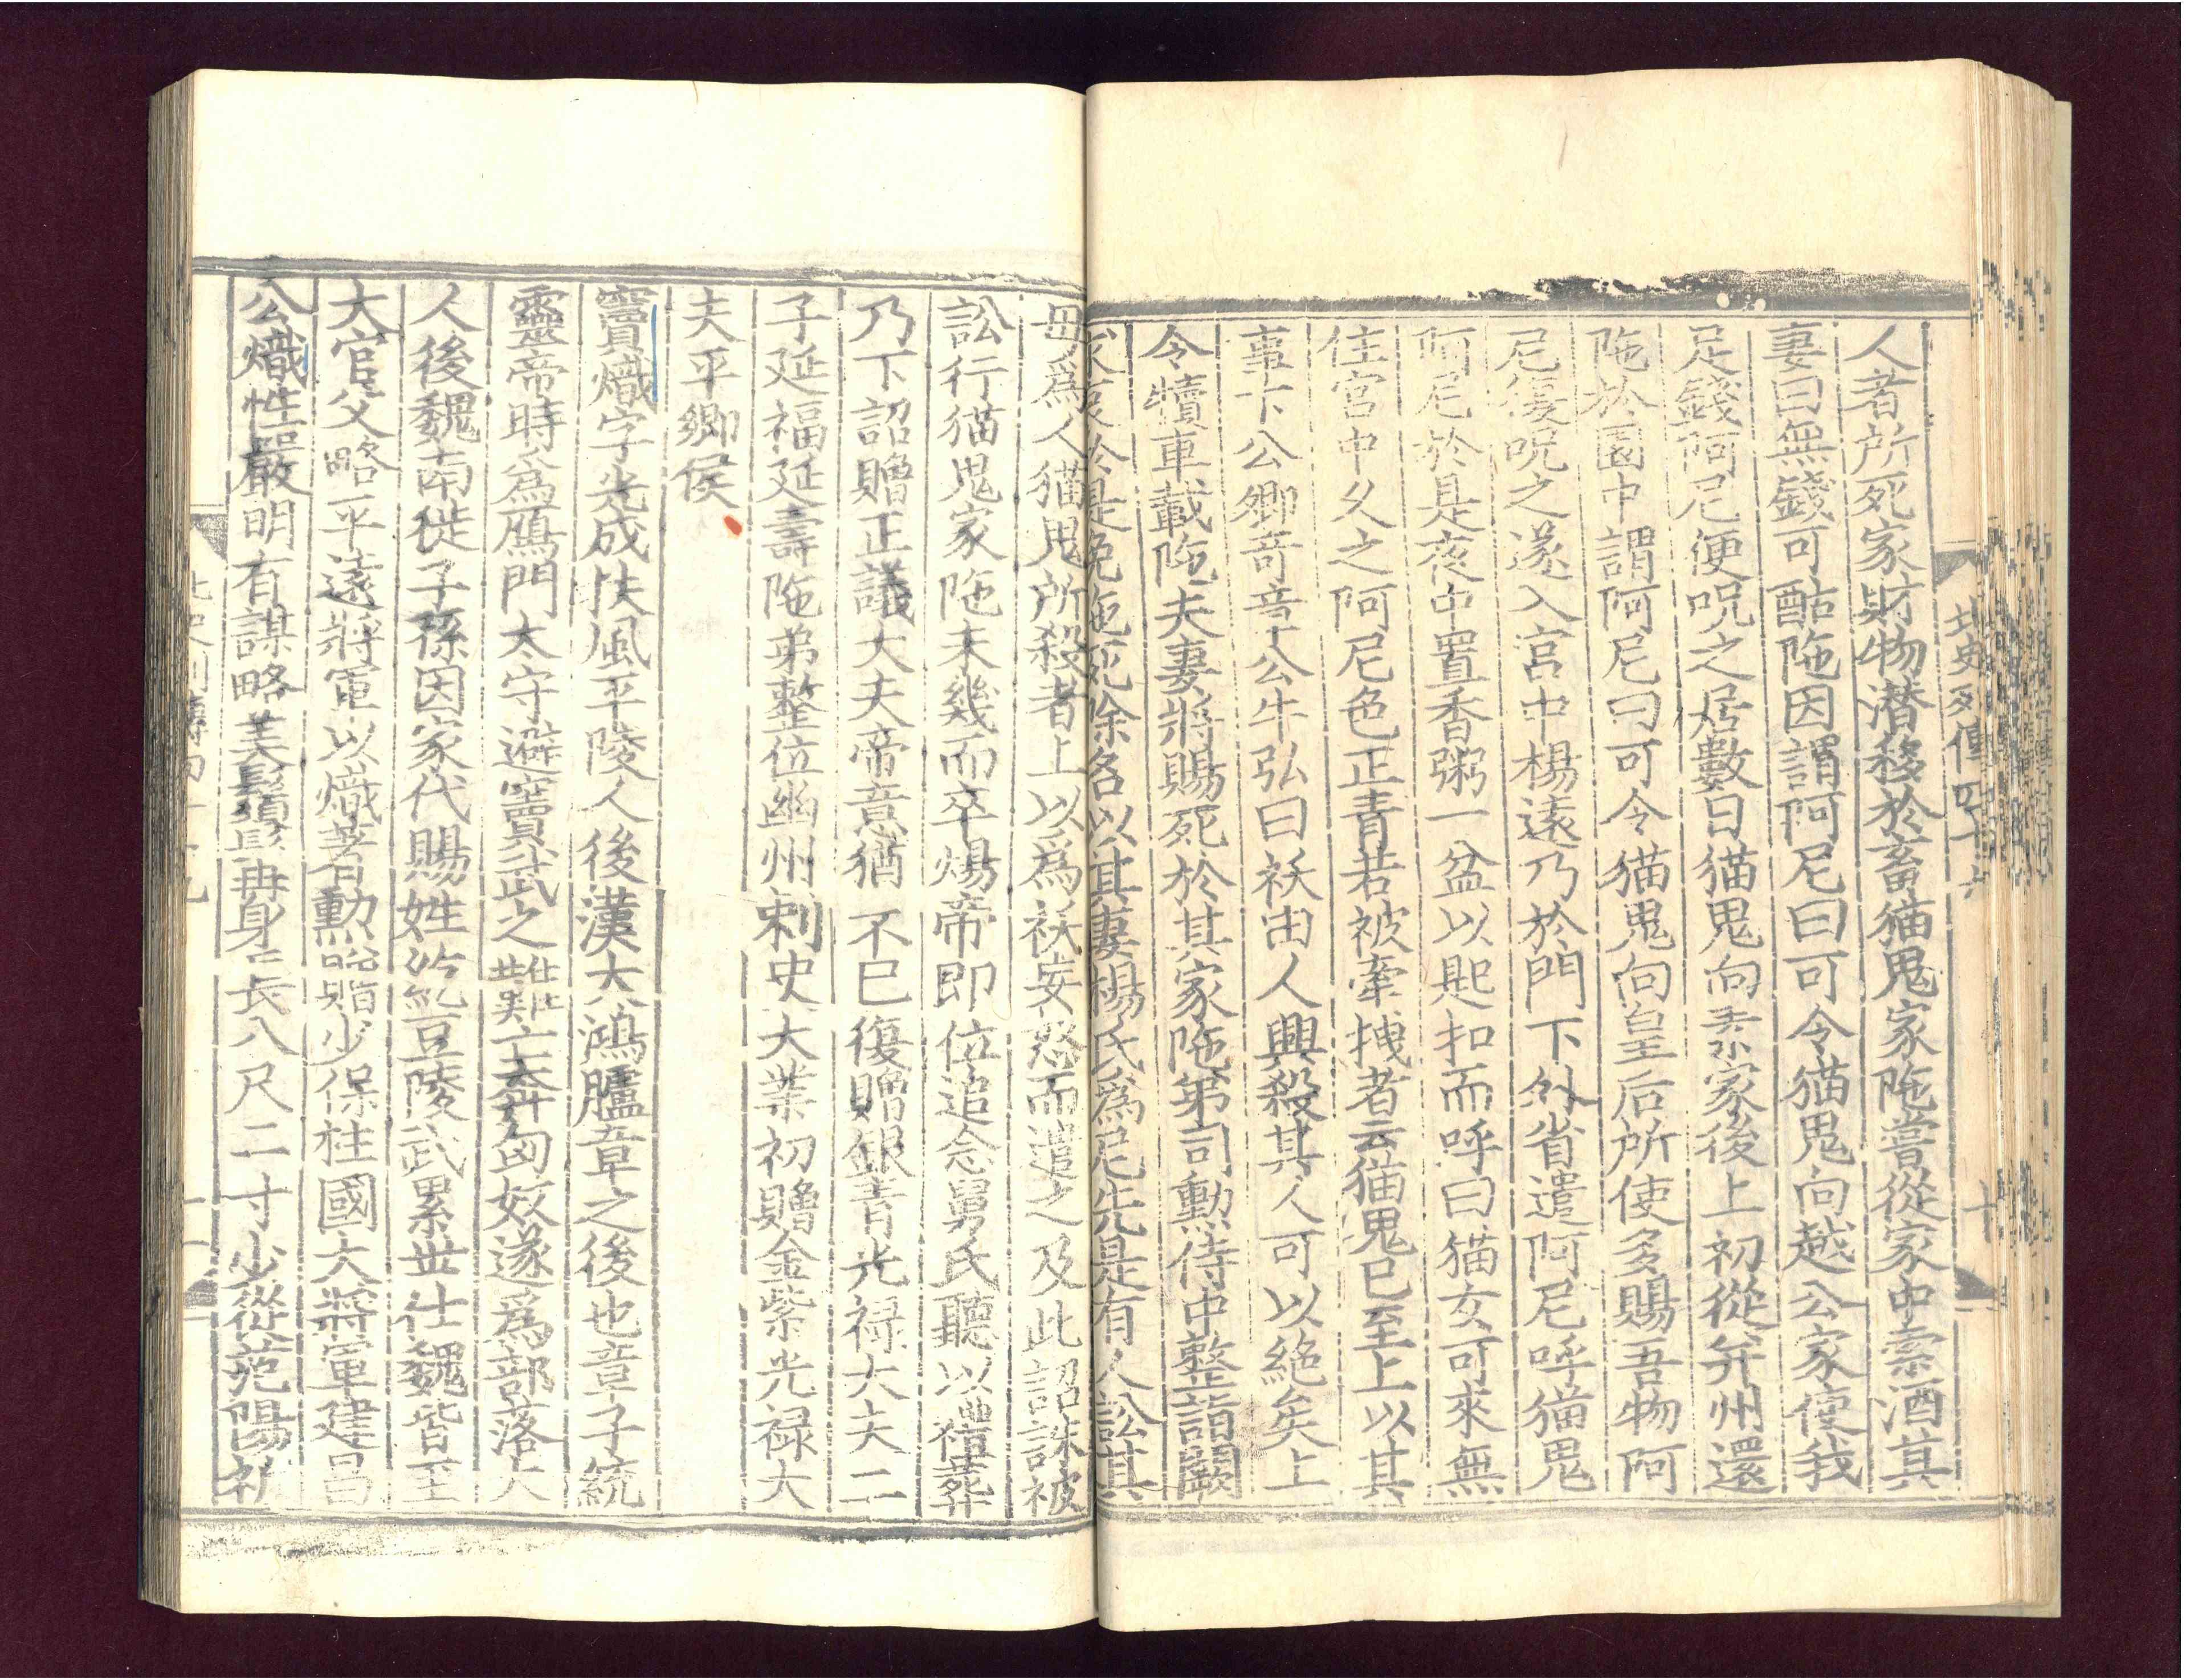 北史列傳四十六
十
人者所死家財物潜移於畜猫鬼家陁嘗從家中索酒其
妻曰無錢可酤陁因謂阿尼曰可令猫鬼向越公家使我
足錢阿尼便呪之居數日猫鬼向素家後上初從并州還
陁於園中謂阿尼曰可令猫鬼向皇后所使多賜吾物阿
尼復呪之遂入宮中楊遠乃於門下外省遣阿尼呼猫鬼
阿尼於是夜中置香粥一盆以匙扣而呼曰猫女可來無
住宮中久之阿尼色正青若被牽拽者云猫鬼已至上以其
事下公卿奇章公牛弘曰袄由人興殺其人可以絶矣上
令犢車載陁夫妻將賜死於其家陁第司勳侍中整詣闕
求哀於是免陁死除名以其妻楊氏為尼先是有人訟其
母爲人猫鬼所殺者上以爲袄妄怒而遣之及此詔誅被
訟行猫鬼家陁未幾而卒煬帝即位追念舅氏聽以禮葬
乃下詔贈正議大夫帝意猶不已復贈銀青光禄大夫二
子延福延壽陁弟整位幽州刺史大業初贈金紫光禄大
夫平鄉侯
竇熾字光成扶風平陵人後漢大鴻臚章之後也章子統
靈帝時爲鴈門太守避竇武之難亡奔匈奴遂爲部落大
人後魏南徙子孫因家代賜姓紇豆陵武累世仕魏皆至
大官父略平遠將軍以熾著勳贈少保柱國大將軍建昌
公熾性嚴明有謀略美鬚髯身長八尺二寸少從范陽祈